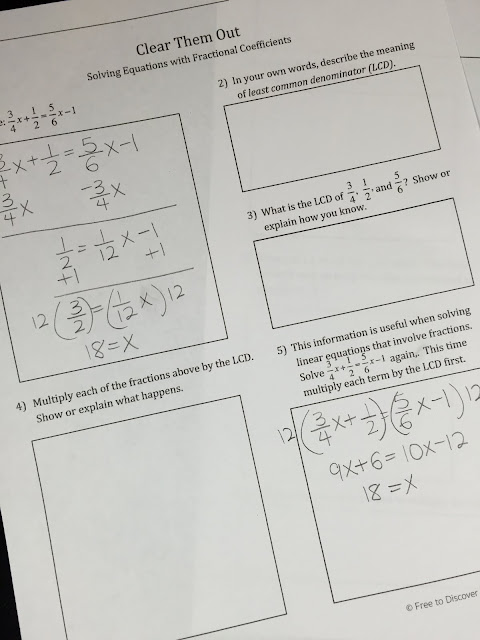 Clear Them Out
Solving Equations with Fractional Coefficients
e: 3/4 x + 1/2 = 5/6 x - 1
3/4 x + 1/2 = 5/6 x - 1
3/4 x   -3/4 x
1/2 = 1/12 x - 1
+1   +1
12 (3/2) = (1/12 x) 12
18 = x
2) In your own words, describe the meaning
of least common denominator (LCD).
3) What is the LCD of 3/4, 1/2, and 5/6? Show or
explain how you know.
4) Multiply each of the fractions above by the LCD.
Show or explain what happens.
5) This information is useful when solving
linear equations that involve fractions.
Solve 3/4 x + 1/2 = 5/6 x - 1 again,. This time
multiply each term by the LCD first.
12 (3/4 x + 1/2) = (5/6 x - 1) 12
9x + 6 = 10x - 12
18 = x
© Free to Discover